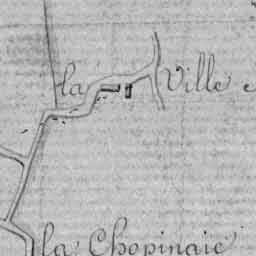 la Ville
la Chopinaie